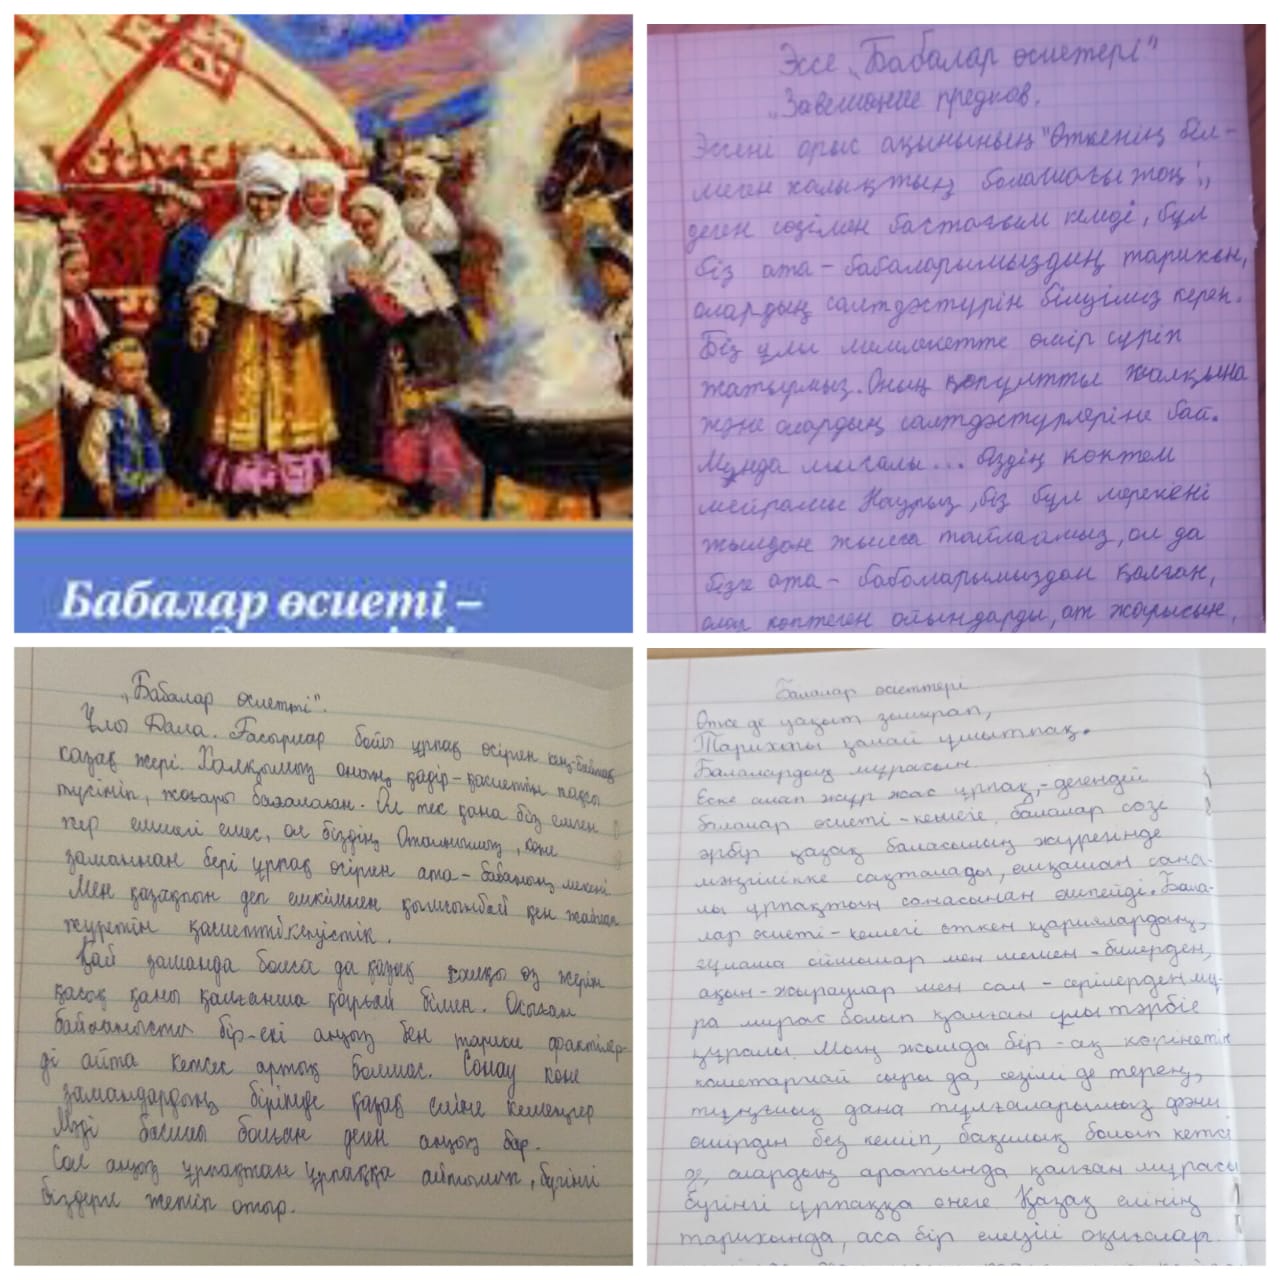 Бабалар өсиеті –
Эссе „Бабалар өсиетері"
„Завещание предков.
Эссені орыс ақынының "Өткенің біл-
меген халықтың болашағы жоқ",
деген сөзімен бастағым келеді, бұл
біз ата - бабаларымыздың тарихын,
олардың салтдәстүрін білуіміз керек.
Біз ұлы мемлекетте өмір сүріп
жатырмыз. Оның көпұлтты халқына
және олардың салтдәстүрлеріне бай.
Мұнда мысалы... біздің көктем
мейрамы Наурыз, біз бұл мерекені
жылдан жылға тойлаймыз, ол да
бізге ата - бабаларымыздан қалған,
олар көптеген ойындарды, ат жарысын,
„Бабалар өсиетті".
Ұлы Дала. Ғасырлар бойы ұрпақ өсірген кең-байтақ
қазақ жері. Халқымыз оның қадір-қасиетін
түсініп, жоғары бағалаған. Ол тек қана біз емген
жер емшегі емес, ол біздің Отанымыз, көне
заманнан бері ұрпақ өсірген ата-бабаның мекені
Мен қазақпын деп ешкімнен қымсынбай кең жайлап
жүретін қасиетті кеңістік.
Қай заманда болса да қазақ халқы өз жерін
қасық қаны қалғанша қорғай білген. Осыған
байланысты бір-екі аңыз бен тарихи фактілер-
ді айта кетсек артық болмас. Сонау көне
замандардың бірінде қазақ еліне кемеңгер
Мәді басшы болған деген аңыз бар.
Сол аңыз ұрпақтан ұрпаққа айтылып, бүгінгі
біздерге жетіп отыр.
Бабалар өсиеттері
Өтсе де уақыт зымырап,
Тарихты қалай ұмытпақ.
Бабалардың мұрасын
Еске алып жүр жас ұрпақ, - дегендей
бабалар өсиеті - кешегі бабалар сөзі
әрбір қазақ баласының жүрегінде
мәңгілікке сақталады, ешқашан сана-
лы ұрпақтың санасынан өшпейді. Баба-
лар өсиеті - кешегі өткен қариялардың,
ғұлама ойшылдар мен шешен - билерден,
ақын - жыраулар мен сал - серілерден мұ-
ра мирас болып қалған ұлы тәрбие
құралы. Мың жылда бір - ақ көрінетін
сыры да, сезімі де терең,
тұңғыш дана тұлғаларымыз фәни
өмірден без кешіп, бақилық болып кетсе
де, олардың артында қалған мұрасы
бүгінгі ұрпаққа өнеге. Қазақ елінің
тарихында, аса бір елеулі оқиғалар